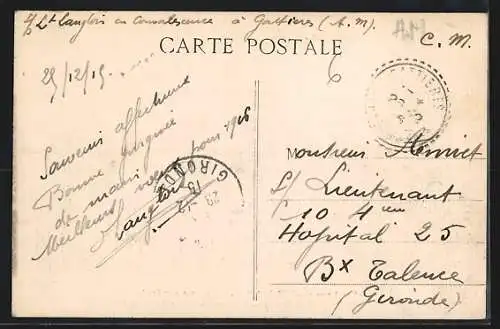 S/Lt Langlois en Convalescence à Gattières (A.M.)
CARTE POSTALE
C.M.
29/12/15
6
Souvenir affectueux
Bonne poignée
de main
Meilleurs vœux pour 1916
Langlois
GIRONDE
GATTIERES
Monsieur Henriet
S/ Lieutenant
10 4eme
Hopital 25
Bx Talence
(Gironde)